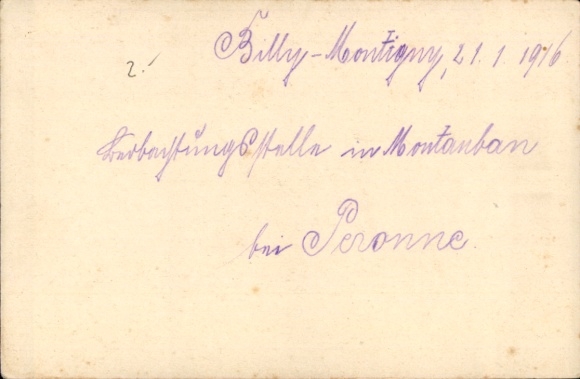 Billy-Montigny, 21.1.1916
2.
Beobachtungsstelle in Montauban
bei Peronne.